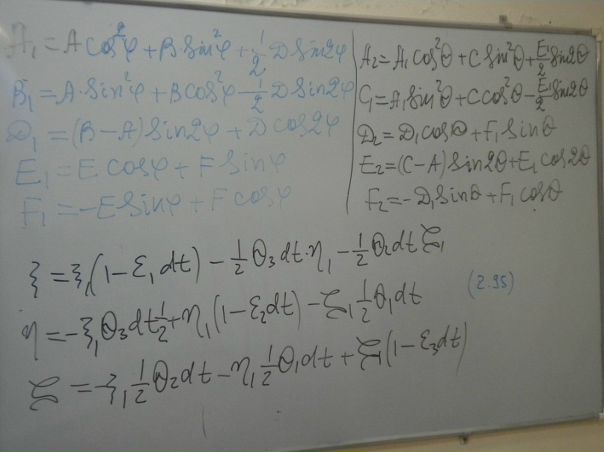 A₁ = A cos²φ + B sin²φ + ½ D sin2φ
B₁ = A·sin²φ + B cos²φ - ½ D sin2φ
D₁ = (B - A) sin2φ + D cos2φ
E₁ = E cosφ + F sinφ
F₁ = -E sinφ + F cosφ
A₂ = A₁ cos²θ + C sin²θ + E₁/2 sin2θ
C₁ = A₁ sin²θ + C cos²θ - E₁/2 sin2θ
D₂ = D₁ cosθ + F₁ sinθ
E₂ = (C - A) sin2θ + E₁ cos2θ
F₂ = -D₁ sinθ + F₁ cosθ
ξ = ξ₁(1 - ε₁dt) - ½ θ₃dt·η₁ - ½ θ₂dt ζ₁
η = -ξ₁θ₃dt ½ + η₁(1 - ε₂dt) - ζ₁ ½ θ₁dt
(2.95)
ζ = -ξ₁ ½ θ₂dt - η₁ ½ θ₁dt + ζ₁(1 - ε₃dt)